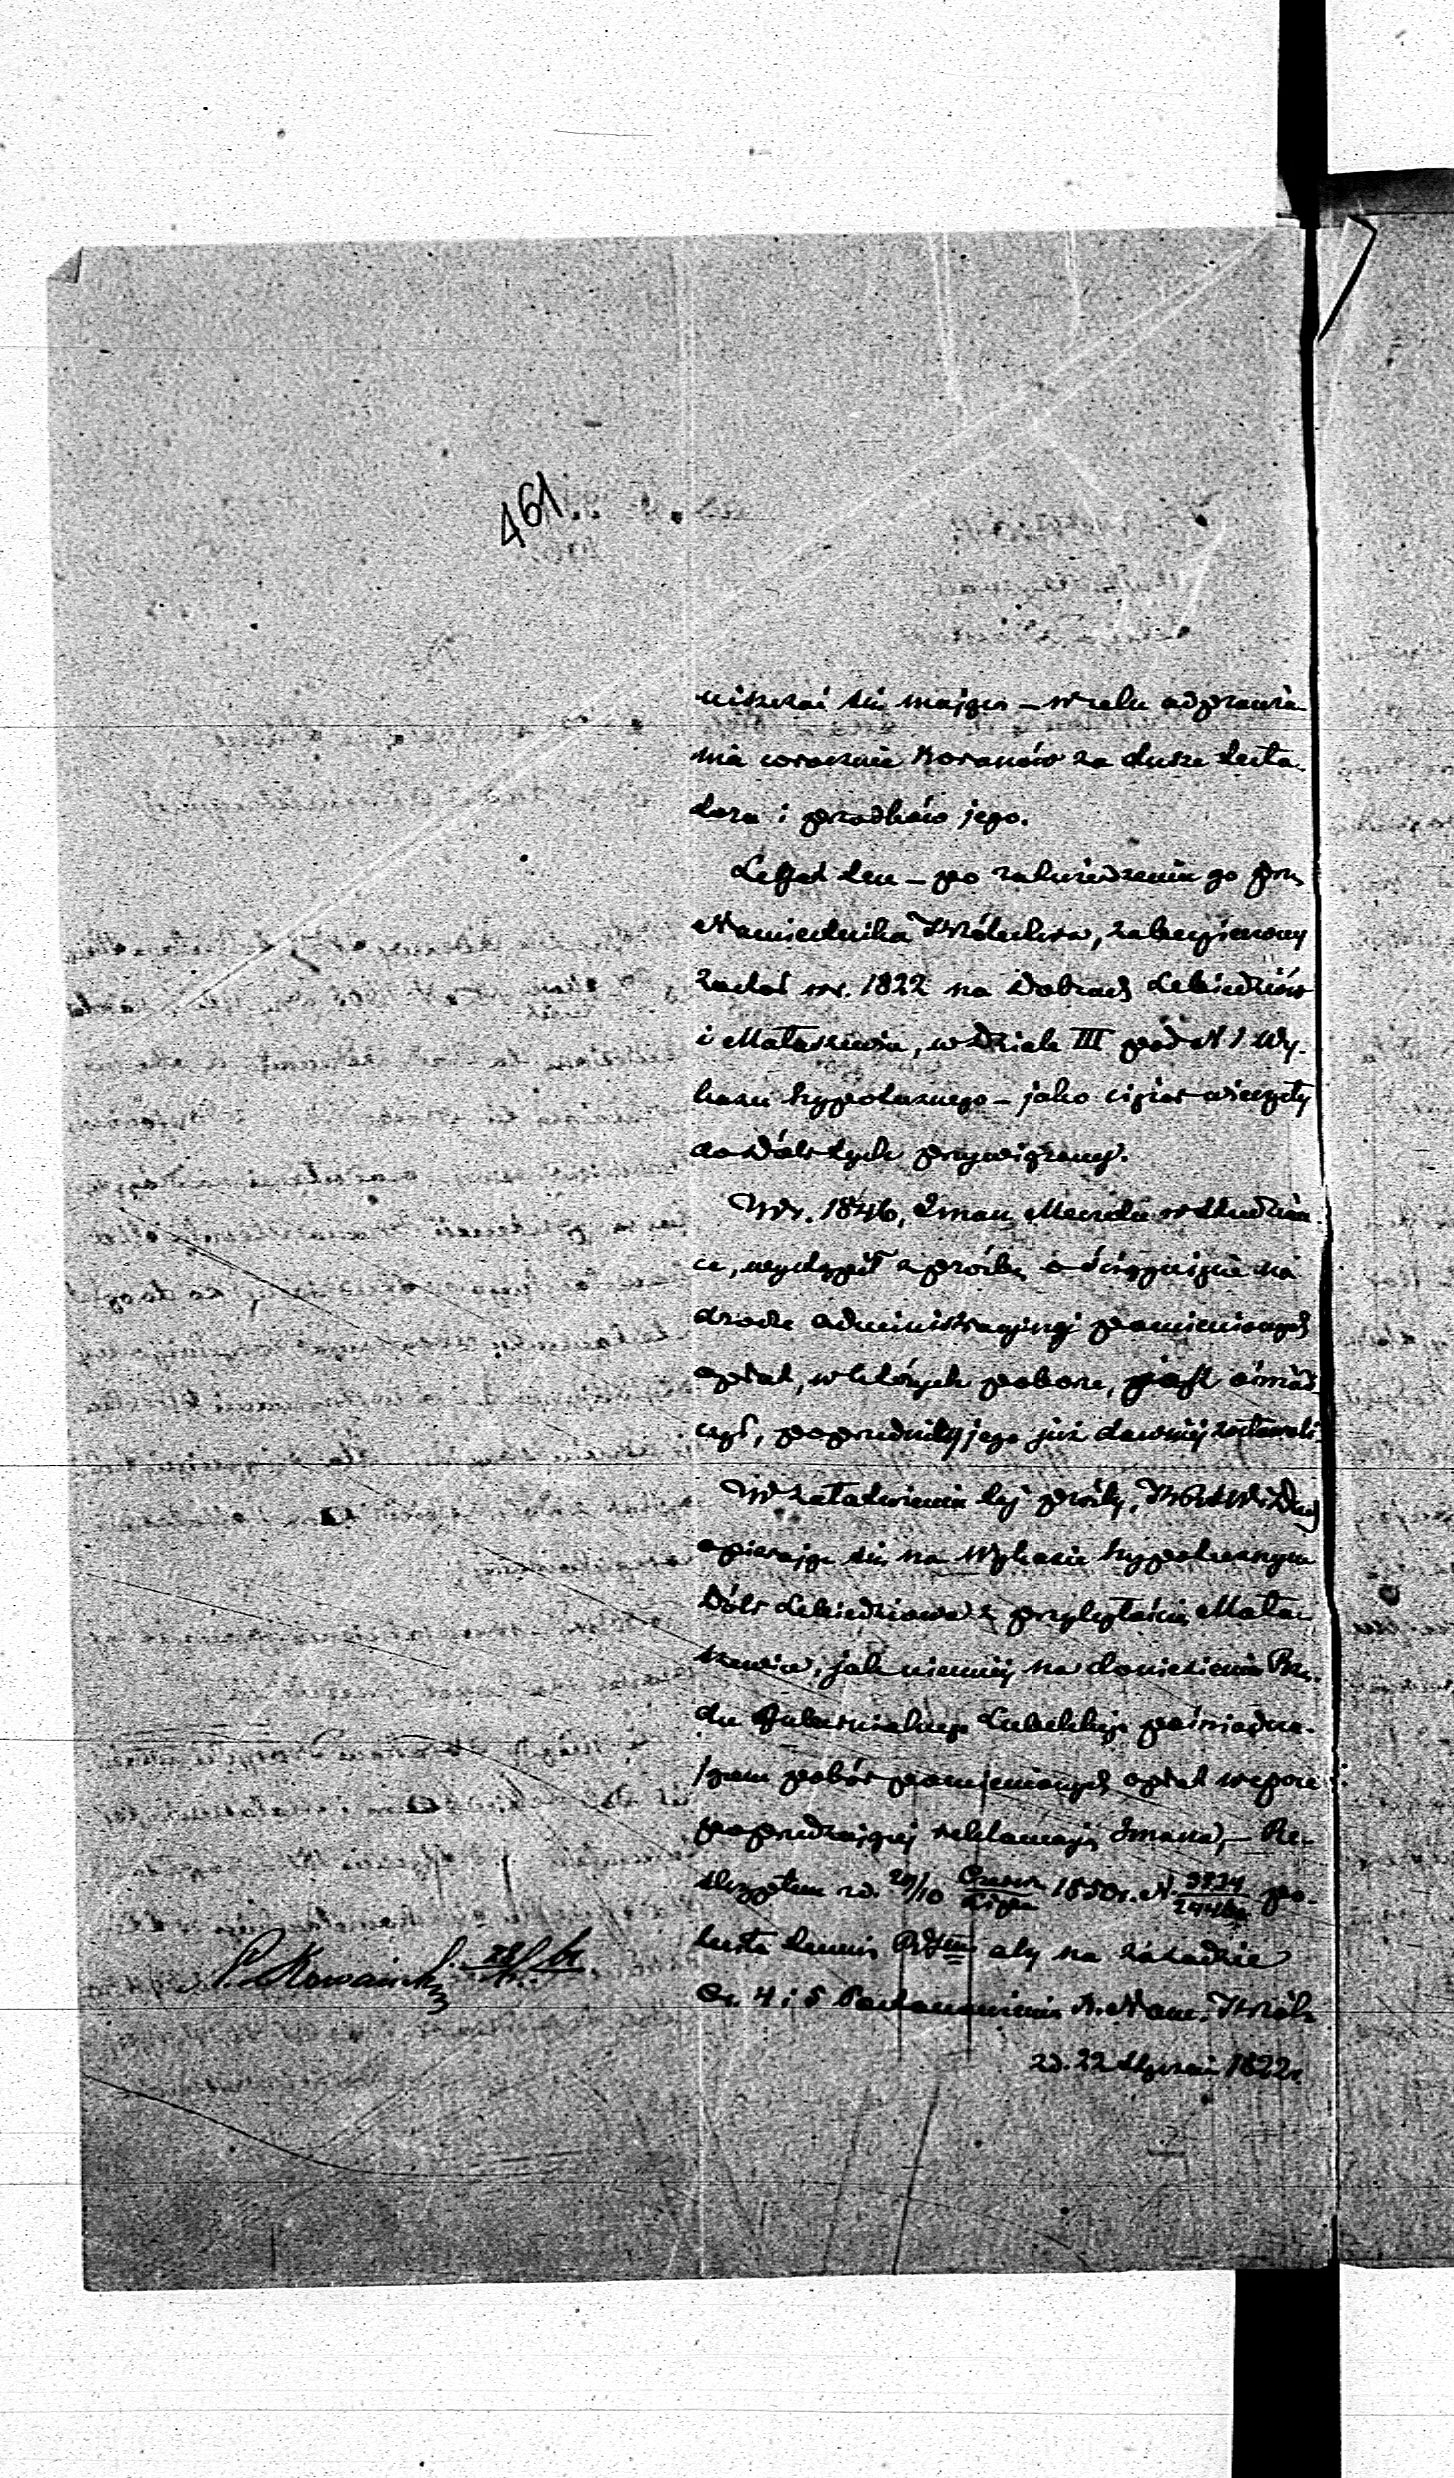 461.
uiszczać się mające – w celu odprawia-
nia corocznie Koranów za duszę testa-
tora i przodków jego.
Legat ten – po zatwierdzeniu go prz
Namiestnika Królestwa, zabezpieczony
został w r. 1822 na Dobrach Lebiedziów
i Małaszewicze, w Dziale III pod N 1 Wy-
kazu hypotecznego – jako ciężar wieczysty
do dóbr tych przywiązany.
W r. 1846, Iman Meczetu w Studzian-
ce, wystąpił z prośbą o ściągnięcie na
drodze administracyjnej pomienionych
opłat, w których poborze, jak oświad
czył, poprzednicy jego już dawniej zostawali.
W załatwieniu tej prośby,
opierając się na Wykazie hypotecznym
Dóbr Lebiedziowa z przyległością Mała-
szewicze, jak niemniej na doniesieniu Rzą-
du Gubernialnego Lubelskiego poświadcza-
jącem pobór pomienionych opłat w epoce
poprzedzającej reklamacją Imana, – Re-
skryptem z d. 29/10 Czerw./Lipca 1850 r. N. po-
leciła temuż aby na zasadzie
4 i 5 Postanowienia Nam. Król.
z d. 22 Stycznia 1822 r.